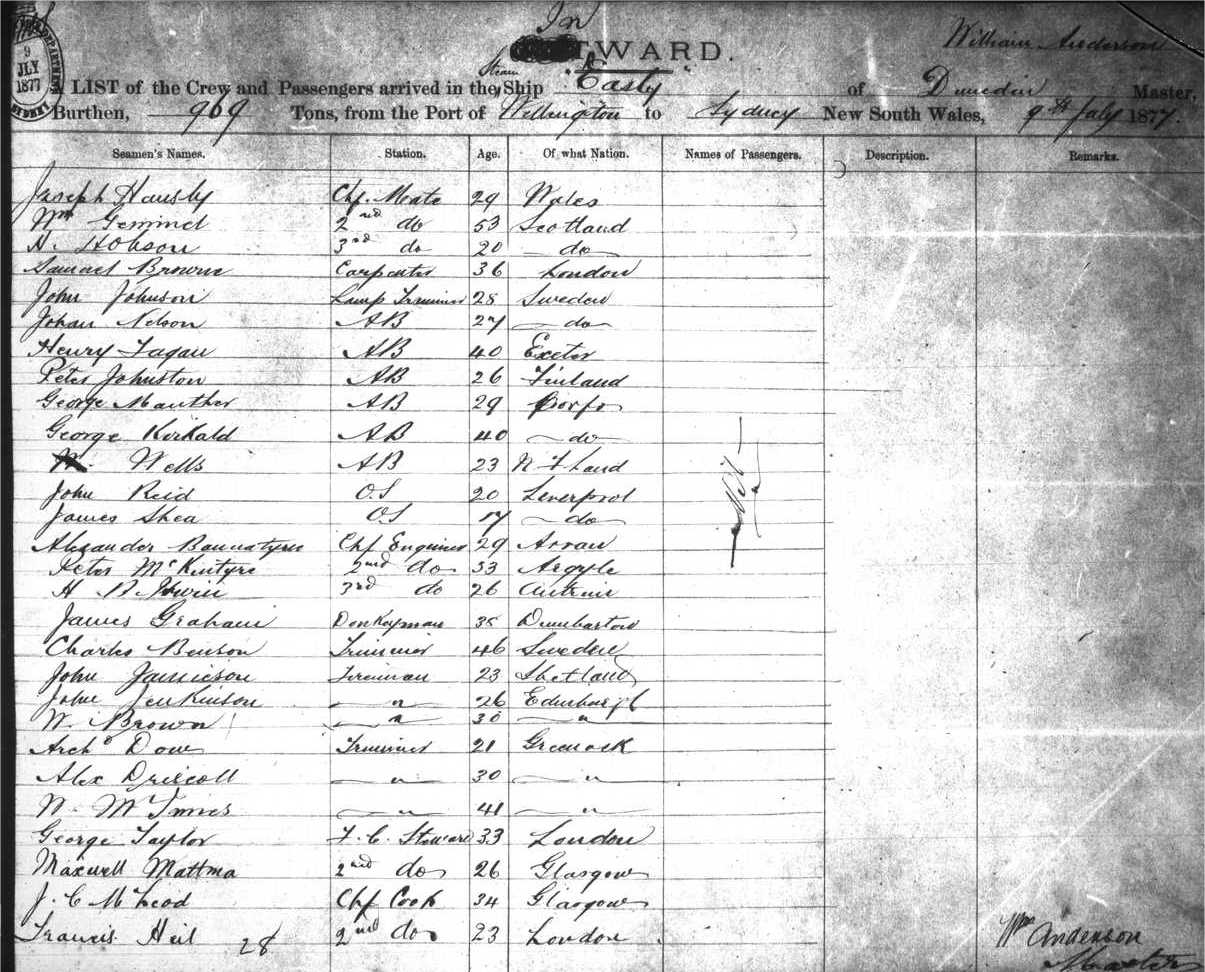 In
WARD. William Anderson
DEPARTMENT
9
JLY
1877
SYDNEY
Steam
A LIST of the Crew and Passengers arrived in the Ship "Easby" of Dunedin Master,
Burthen, 969 Tons, from the Port of Wellington to Sydney New South Wales, 9th July 1877.
Seamen's Names. Station. Age. Of what Nation. Names of Passengers. Description. Remarks.
Joseph Chf. Mate 29 Wales
Wm Gemmel 2nd do 53 Scotland
H. Hobson 3rd do 20 do
Samuel Browne Carpenter 36 London
John Johnson Lamp Trimmer 28 Sweden
Johan Nelson AB 27 do
Henry Fagan AB 40 Exeter
Peter Johnston AB 26 Finland
George Manther AB 29 Corfo
George Kirkald AB 40 do
Wells AB 23 N F Land
John Reid O.S 20 Liverpool
James Shea O.S 17 do
Alexander Bannatyne Chf Engineer 29 Arran
Peter McKintyre 2nd do 33 Argyle
H 3rd do 26 Antrim
James Graham Donkeyman 35 Dumbarton
Charles Benson Trimmer 46 Sweden
John Jamieson Fireman 23 Shetland
John Jenkinson " 26 Edinburgh
W. Brown " 30 "
Archd Dow Trimmer 21 Greenock
Alex Driscoll " 30 "
W. McInnes " 41 "
George Taylor F. C. Steward 33 London
Maxwell Mattma 2nd do 26 Glasgow
J. C McLeod Chf Cook 34 Glasgow
Francis Heil 2nd do 23 London
28
Nil
Wm Anderson
Master